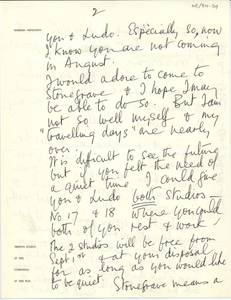 2
you & Ludo. Especially so, now
I know you are not coming
in August.
I would adore to come to
Stonegrave & I hope I may
be able to do so. But I am
not so well myself & my
"travelling days" are nearly
over.
It is dificult to see the future
but if you felt the need of
a quiet time I could give
you & Ludo both Studios
No 17 & 18 where you could
both of you rest & work
The 2 studios will be free from
Sept 1st & at your disposal
for as long as you would like
to be quiet. Stonegrave means a